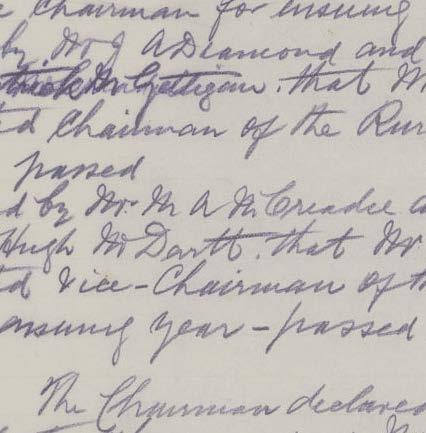 Chairman for ensuing
by Mr J A Diamond and
that M
ed Chairman of the Rur
passed
d by Mr. M A McCreadie a
Hugh McDartt. that Mr
ed Vice-Chairman of th
ensuing year - passed
The Chairman declared